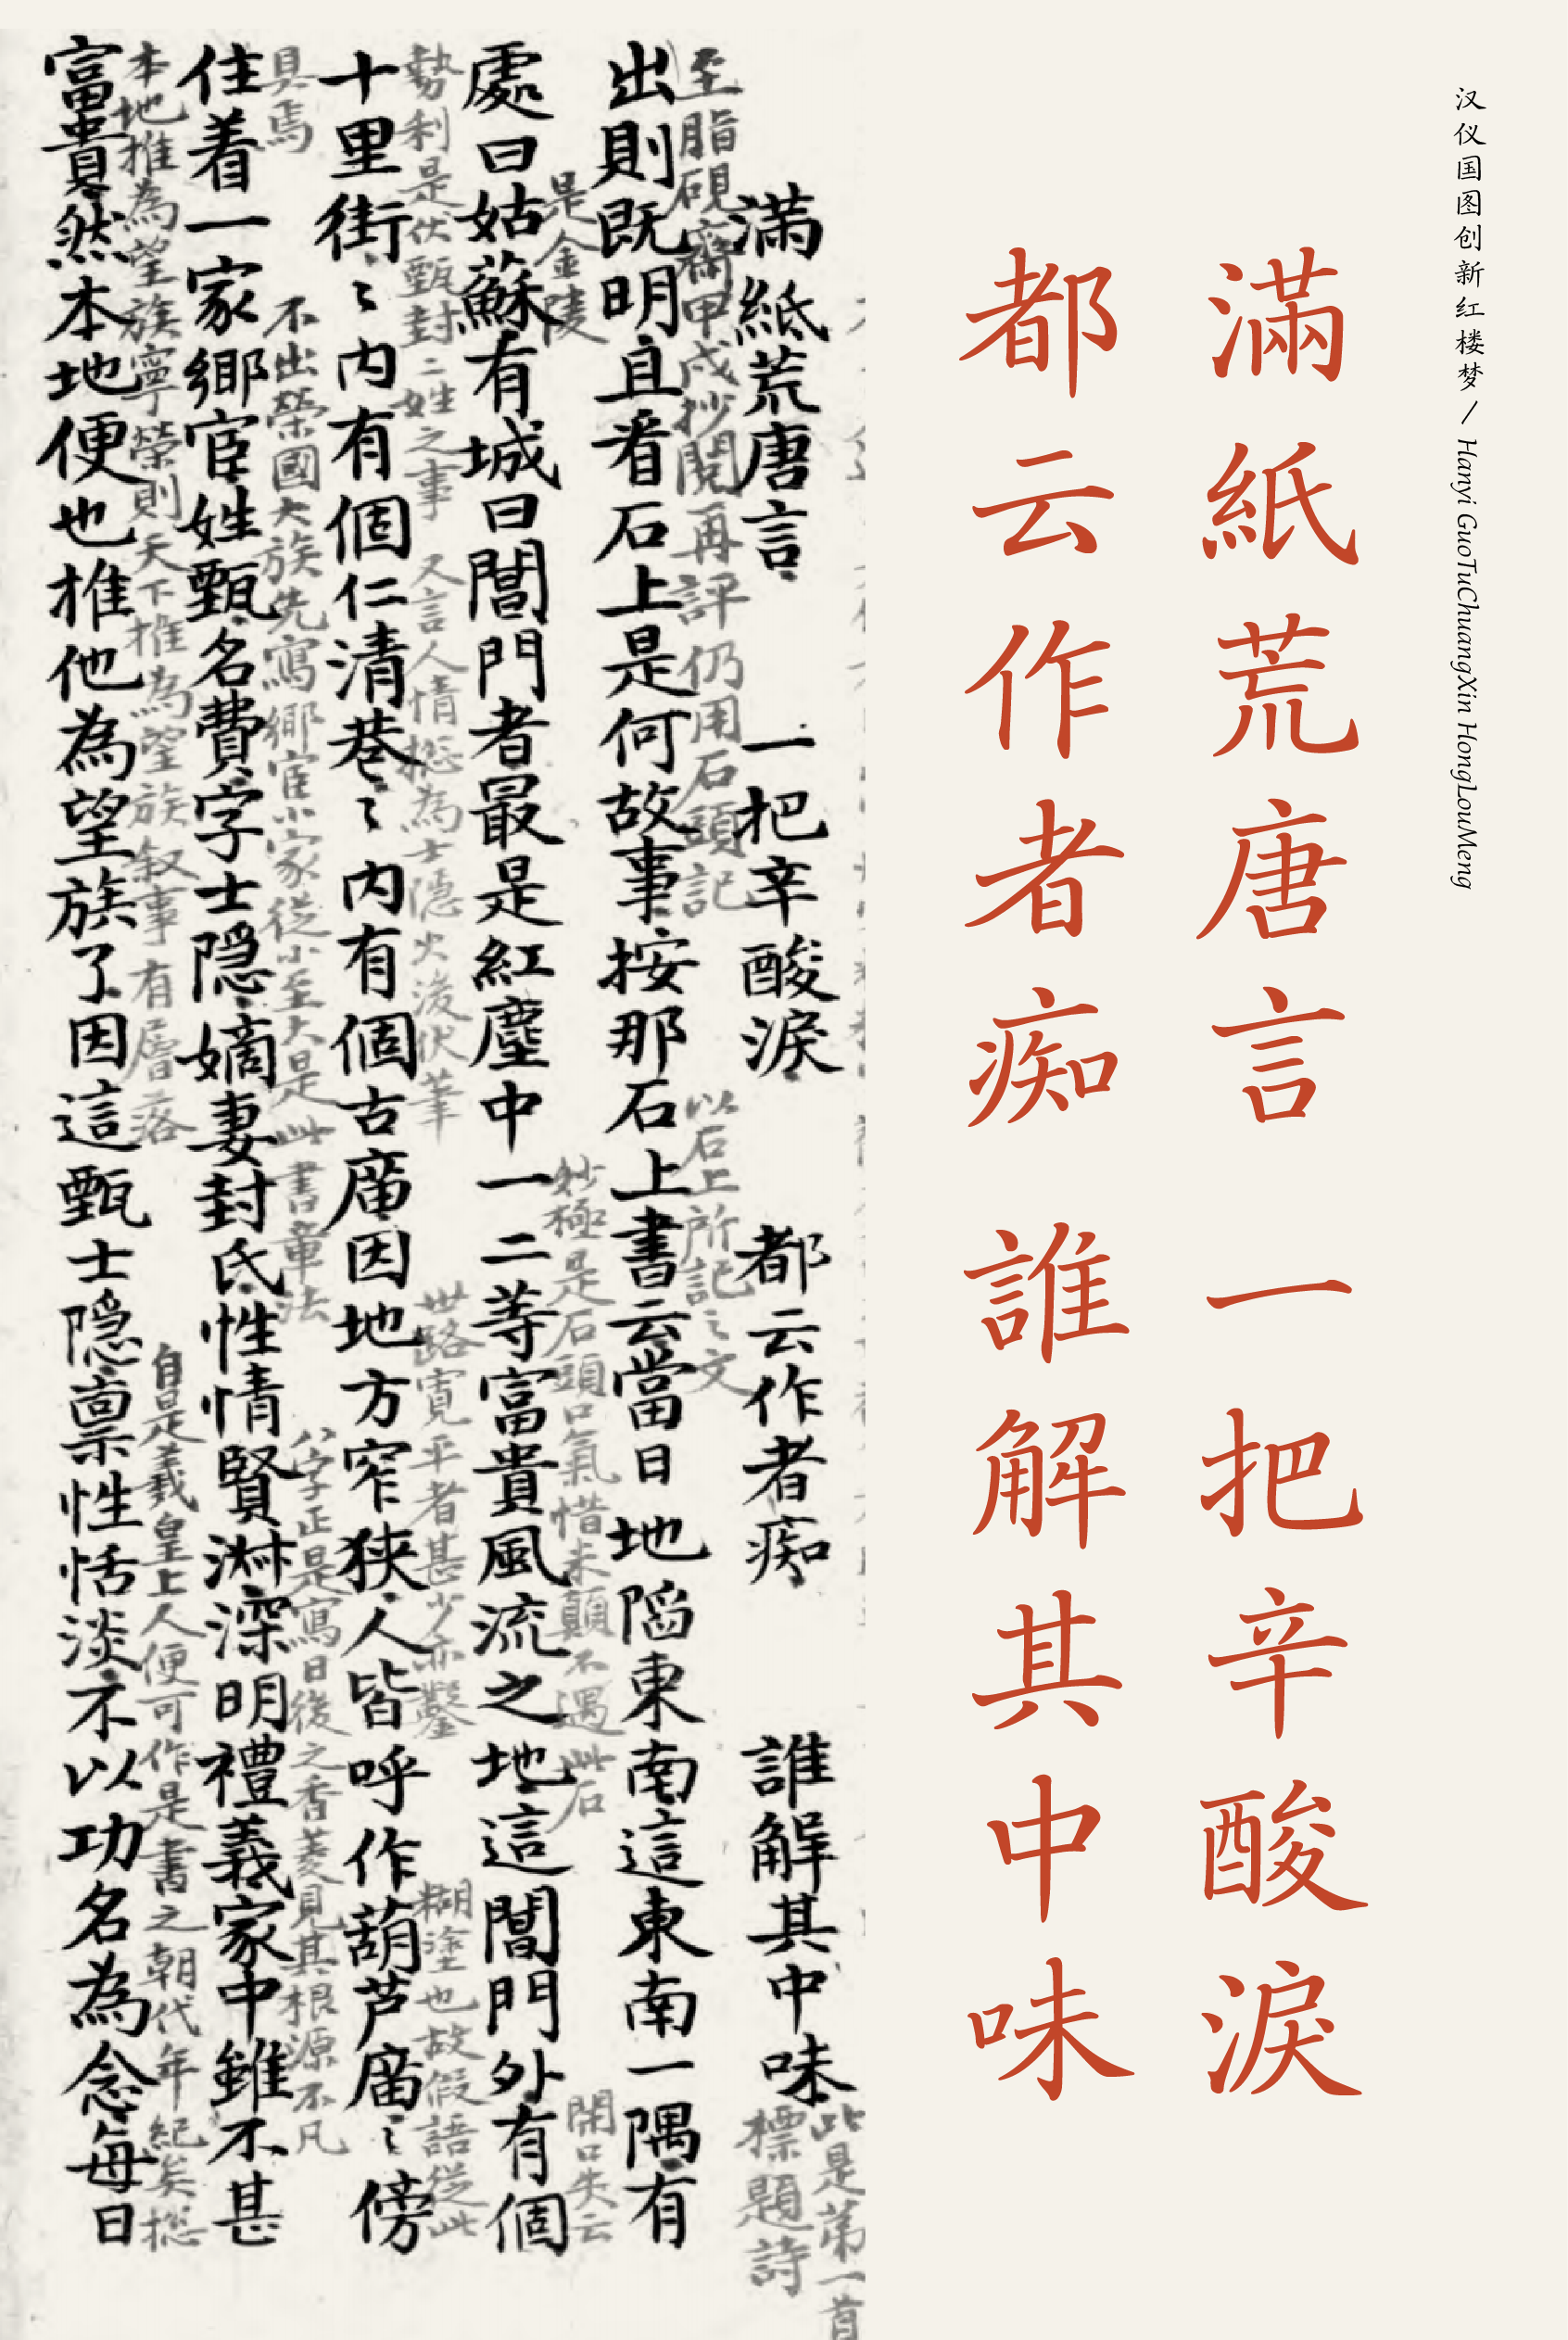 汉仪国图创新红楼梦 / Hanyi GuoTuChuangXin HongLouMeng
滿紙荒唐言 一把辛酸淚
都云作者痴 誰解其中味
滿紙荒唐言 一把辛酸淚 都云作者痴 誰解其中味
此是第一首
標題詩
至脂硯齋甲戌抄閱再評仍用石頭記
以石上所記之文
出則既明且看石上是何故事按那石上書云當日地陷東南這東南一隅有
是金陵
妙極是石頭口氣惜米顛不遇此石
開口失云
處曰姑蘇有城曰閶門者最是紅塵中一二等富貴風流之地這閶門外有個
勢利是伏甄封二姓之事
又言人情總為士隱火後伏筆
世路寬平者甚少亦鑿
糊塗也故假語從此
具焉
十里街〻內有個仁清巷〻內有個古廟因地方窄狹人皆呼作葫芦廟〻傍
不出榮國大族先寫鄉宦小家從小至大是此書章法
八字正是寫日後之香菱見其根源不凡
住着一家鄉宦姓甄名費字士隐嫡妻封氏性情賢淑深明禮義家中雖不甚
本地推為望族寧榮則天下推為望族叙事有層落
自是羲皇上人便可作是書之朝代年紀矣總
富貴然本地便也推他為望族了因這甄士隐禀性恬淡不以功名為念每日